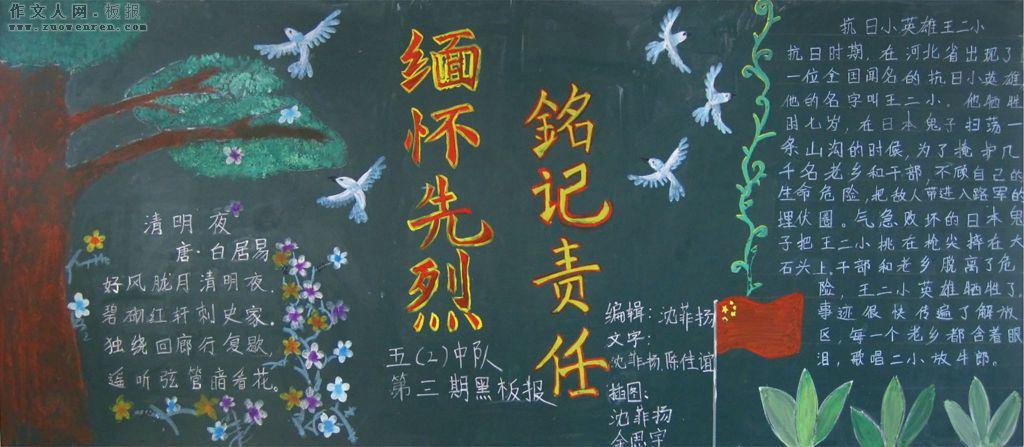 作文人网·板报
www.zuowenren.com
缅怀先烈
銘记责任
清明夜
唐·白居易
好风胧月清明夜,
碧砌红轩刺史家。
独绕回廊行复歇,
遥听弦管暗看花。
五(2)中队
第三期黑板报
编辑:沈菲扬
文字:
沈菲扬,陈佳谊
插图:
沈菲扬
余思宇
抗日小英雄王二小
抗日时期,在河北省出现了
一位全国闻名的抗日小英雄,
他的名字叫王二小。他牺牲
时七岁,在日本鬼子扫荡一
条山沟的时候,为了掩护几
千名老乡和干部,不顾自己的
生命危险,把敌人带进入路军的
埋伏圈。气急败坏的日本鬼
子把王二小挑在枪尖摔在大
石头上,干部和老乡脱离了危
险,王二小英雄牺牲了。
事迹很快传遍了解放
区,每一个老乡都含着眼
泪,歌唱二小放牛郎。